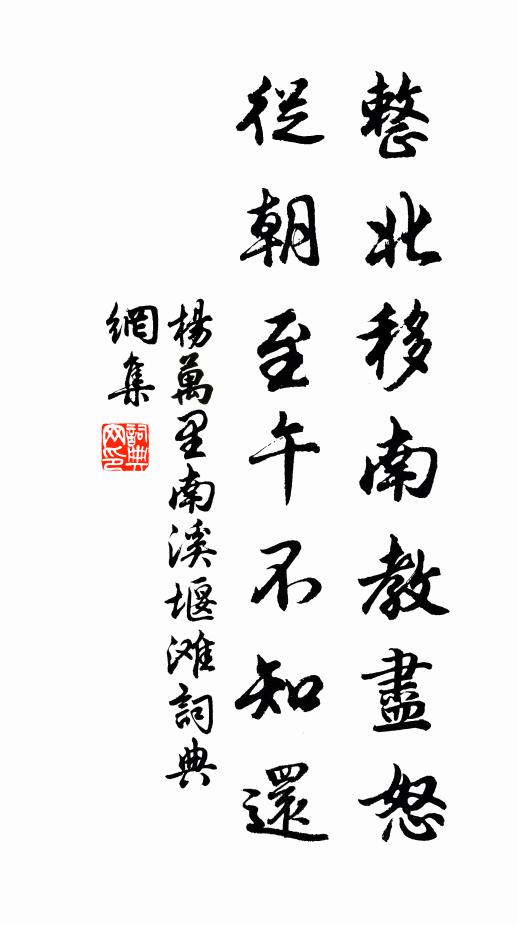 整北移南教盡怒
從朝至午不知還
楊萬里南溪堰滩詞典
網集
詞典
网印